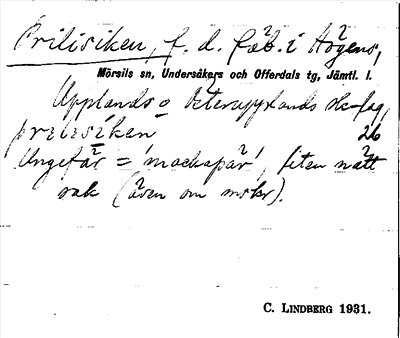 Prilisiken, f. d. fäb. i Högens,
Mörsils sn, Undersåkers och Offerdals tg, Jämtl. l.
Upplands o Västerupplands
prilisíken 26
Ungefär = 'mackapär', liten nätt
sak (även om mskr).
C. LINDBERG 1931.